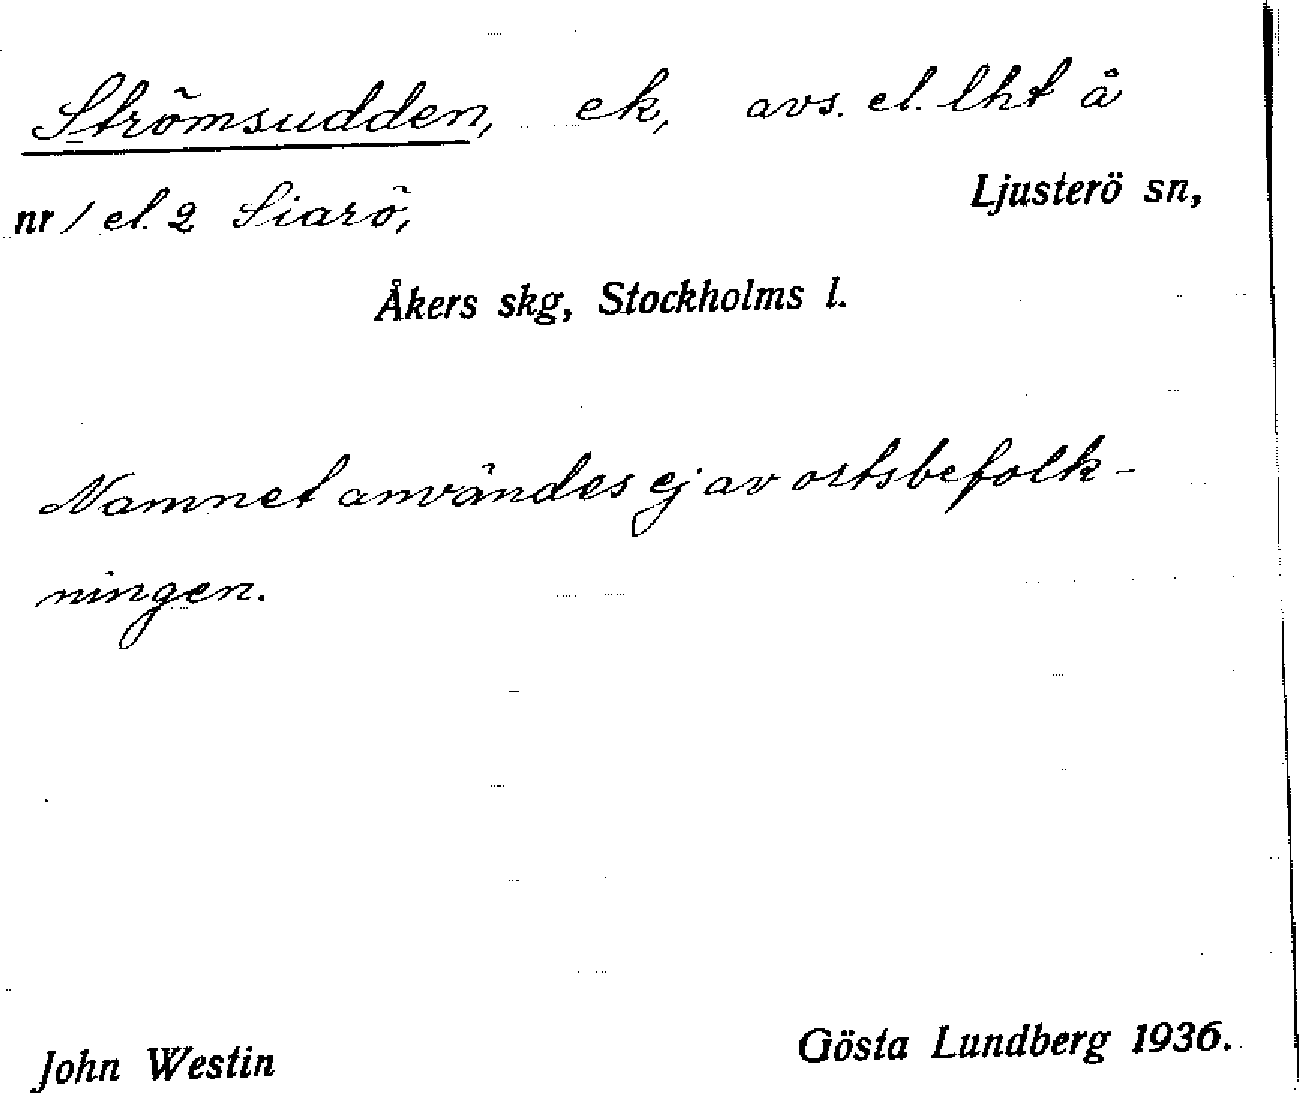 Strömsudden, ek, avs. el. lht å
nr 1 el. 2 Siarö, Ljusterö sn,
Åkers skg, Stockholms l.
Namnet användes ej av ortsbefolk-
ningen.
John Westin Gösta Lundberg 1936.